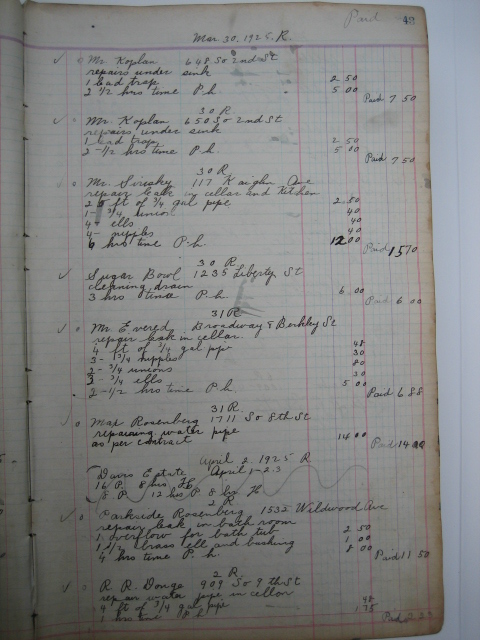 Paid 43
Mar 30, 1925. R.
Mr Koplan 648 So 2nd St
repairs under sink
1 lead trap 2 50
2 1/2 hrs time P.h. 5 00
Paid 7 50
30 R.
Mr. Koplan 650 So 2nd St
repairs under sink
1 lead trap 2 50
2-1/2 hrs time P.h. 5 00
Paid 7 50
30 R.
Mr. 117 Kaighn Ave
repair leak in cellar and kitchen
ft of 3/4 gal pipe 2.80
1- 3/4 union 40
4- ells 40
4- nipples 40
6 hrs time P.h. 12 00
Paid 15 70
30 R.
Sugar Bowl 1235 Liberty St
cleaning drain
3 hrs time P.h. 6 00
Paid 6 00
31 R.
Mr. Evered Broadway & Berkley St
repair leak in cellar.
4 ft of 3/4 gal pipe 48
3- 3/4 nipples 30
2- 3/4 unions 80
3- 3/4 ells 30
2-1/2 hrs time P.h. 5 00
Paid 6 88
31 R.
Max Rosenberg 1711 So 8th St
repairing water pipe
as per contract 14 00
Paid 14 00
April 2, 1925 R
Davis Estate April 1-2.3
16 P. 8 hrs H
8 P. 12 hrs P 8 hr H.
2 R.
Parkside Rosenberg 1532 Wildwood Ave
repair leak in bath room
1 overflow for bath tub 2 50
1 1/4 brass ell and bushing 1 00
4 hrs time P.h. 8 00
Paid 11 50
2 R.
R. R. Donge 909 So 9th St
repair water pipe in cellar
4 ft of 3/4 gal pipe 48
1 hrs time P.h 1 75
Paid 2 23